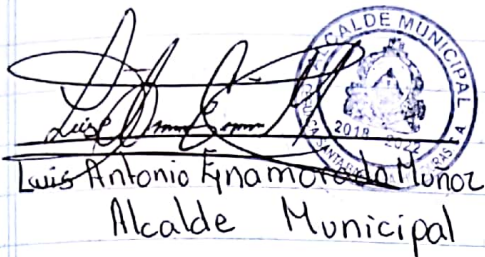 ALCALDE MUNICIPAL
2018 2022
Luis Antonio Enamorado Munoz
Alcalde Municipal